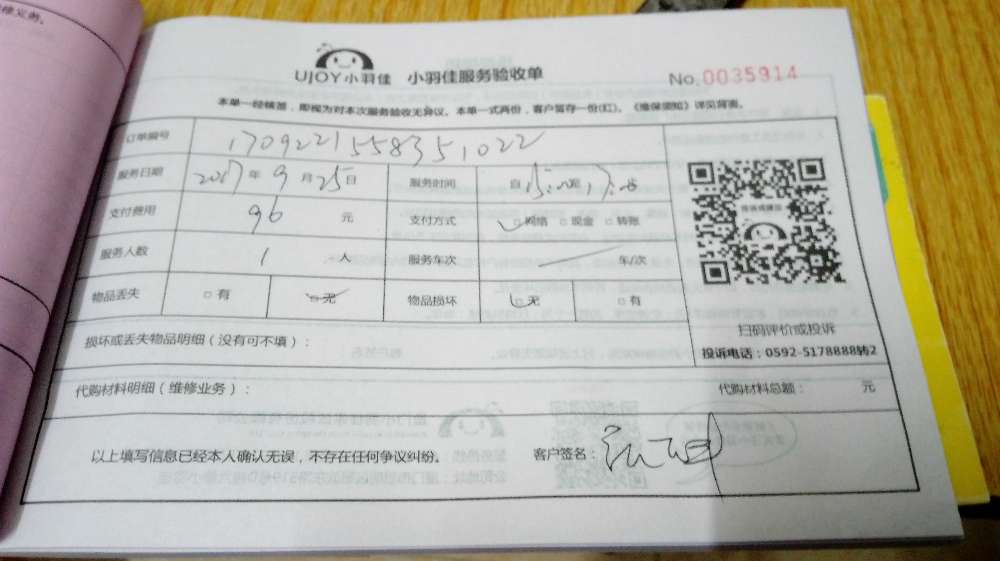 修义务。
UJOY小羽佳 小羽佳服务验收单
No.0035914
本单一经填签，即视为对本次服务验收无异议。本单一式两份，客户留存一份(红)。《维保须知》详见背面。
订单编号 170922155835 1022
服务日期 2017年9月25日 服务时间 自15:00至17:00
支付费用 96 元 支付方式 □网络 □现金 □转账
服务人数 1 人 服务车次 车/次
物品丢失 □有 □无 物品损坏 □无 □有
扫码评价或投诉
损坏或丢失物品明细（没有可不填）：
投诉电话：0592-5178888转2
代购材料明细（维修业务）： 代购材料总额： 元
以上填写信息已经本人确认无误，不存在任何争议纠纷。 客户签名：